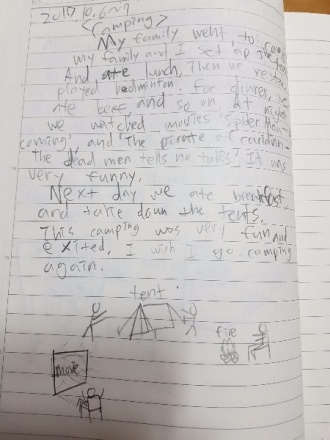 2017.10.6~7
<Camping>
My family went to camp
my family and I set up the tent
And ate lunch, Then we rested
played badminton. For dinner, we
ate beef and so on At night
we watched movies 'Spider man-
coming' and 'The pirate of caribbean-
The dead men tells no tales' It was
very funny.
Next day we ate breakfast
and take down the tents.
This camping was very fun and
exited, I wish I go camping
again.
tent
fire
movie